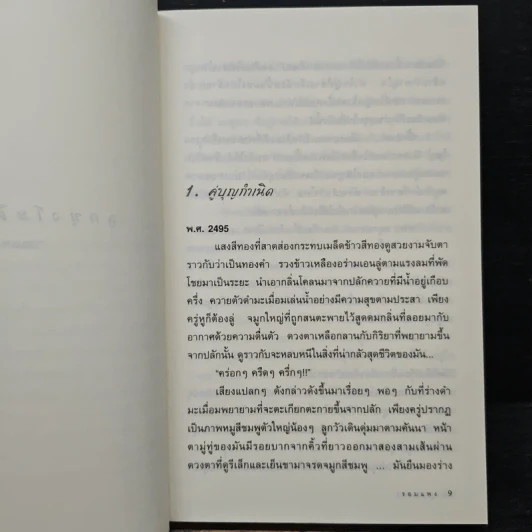 1. คู่บุญกำเนิด
พ.ศ. 2495
แสงสีทองที่สาดส่องกระทบเมล็ดข้าวสีทองดูสวยงามจับตา
ราวกับว่าเป็นทองคำ รวงข้าวเหลืองอร่ามเอนลู่ตามแรงลมที่พัด
โชยมาเป็นระยะ นำเอากลิ่นโคลนมาจากปลักควายที่มีน้ำอยู่เกือบ
ครึ่ง ควายตัวดำมะเมื่อมเล่นน้ำอย่างมีความสุขตามประสา เพียง
ครู่หูก็ต้องลู่ จมูกใหญ่ที่ถูกสนตะพายไว้สูดดมกลิ่นที่ลอยมากับ
อากาศด้วยความตื่นตัว ดวงตาเหลือกลานกับกิริยาที่พยายามขึ้น
จากปลักนั้น ดูราวกับจะหลบหนีในสิ่งที่น่ากลัวสุดชีวิตของมัน...
"คร่อกๆ ครืดๆ ครึ่กๆ!!"
เสียงแปลกๆ ดังกล่าวดังขึ้นมาเรื่อยๆ พอๆ กับที่ร่างดำ
มะเมื่อมพยายามที่จะตะเกียกตะกายขึ้นจากปลัก เพียงครู่ปรากฏ
เป็นภาพหมูสีชมพูตัวใหญ่น้องๆ ลูกวัวเดินดุ่มมาตามคันนา หน้า
ตามู่ทู่ของมันมีรอยบากจากคิ้วที่ยาวออกมาสองสามเส้นผ่าน
ดวงตาที่ดูรีเล็กและเย็นชามาจรดจมูกสีชมพู ... มันยืนมองร่าง
จอมนาง 9